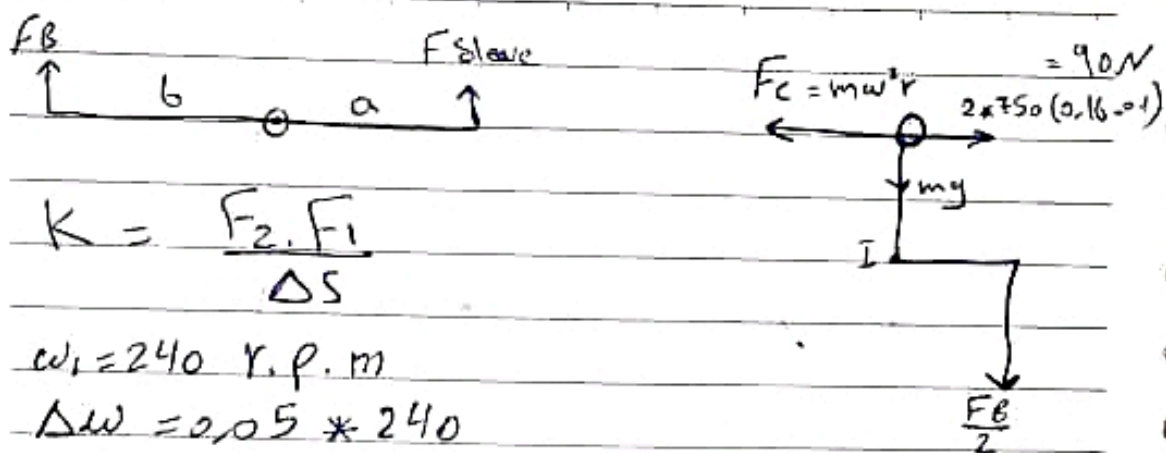 FB
b
a
F Sleeve
Fc = mω²r
= 90N
2*750(0,16-01)
mg
K = F2. F1 / ΔS
I
ω1 = 240 r.p.m
Δω = 0,05 * 240
FB / 2